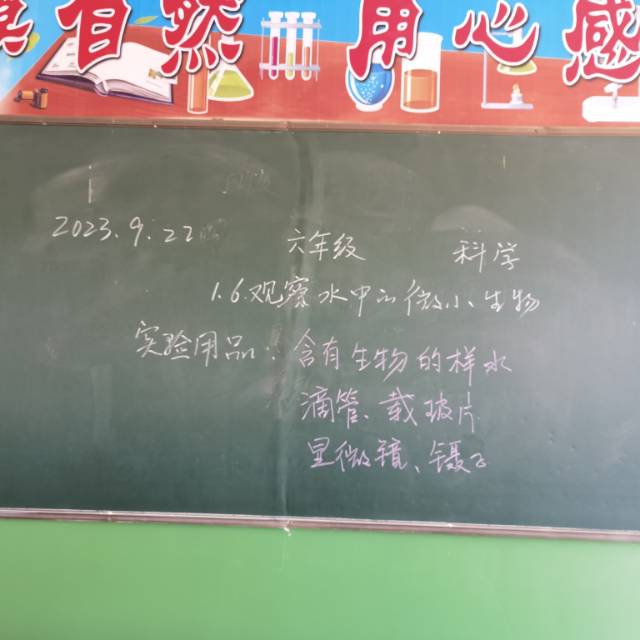 自然 用心感
2023.9.22
六年级 科学
1.6.观察水中的微小生物
实验用品：含有生物的样水
滴管、载玻片
显微镜、镊子